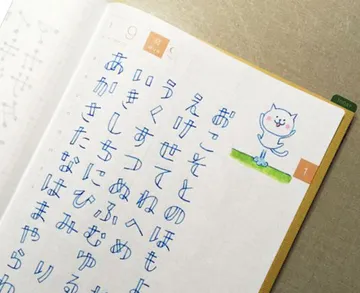 9
あいうえお
かきくけこ
さしすせそ
たちつてと
なにぬねの
はひふへほ
まみむめも
やゆよ
らり
1